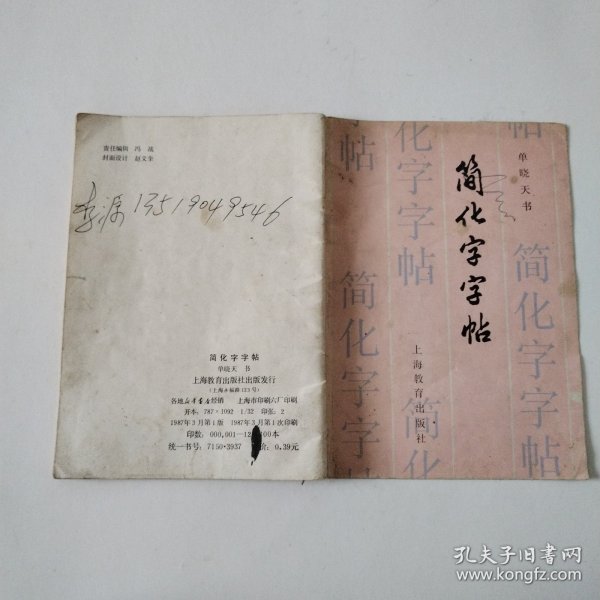 责任编辑 冯战
封面设计 赵文奎
李源 13519049546
简化字字帖
单晓天 书
上海教育出版社出版发行
(上海永福路123号)
各地新华书店经销 上海市印刷六厂印刷
开本:787×1092 1/32 印张:2
1987年3月第1版 1987年3月第1次印刷
印数:000,001—12 00本
统一书号:7150·3937 价:0.39元
单晓天书
简化字字帖
上海教育出版社
帖
化字字帖
简化字字
简化字字帖
孔夫子旧书网
www.kongfz.com